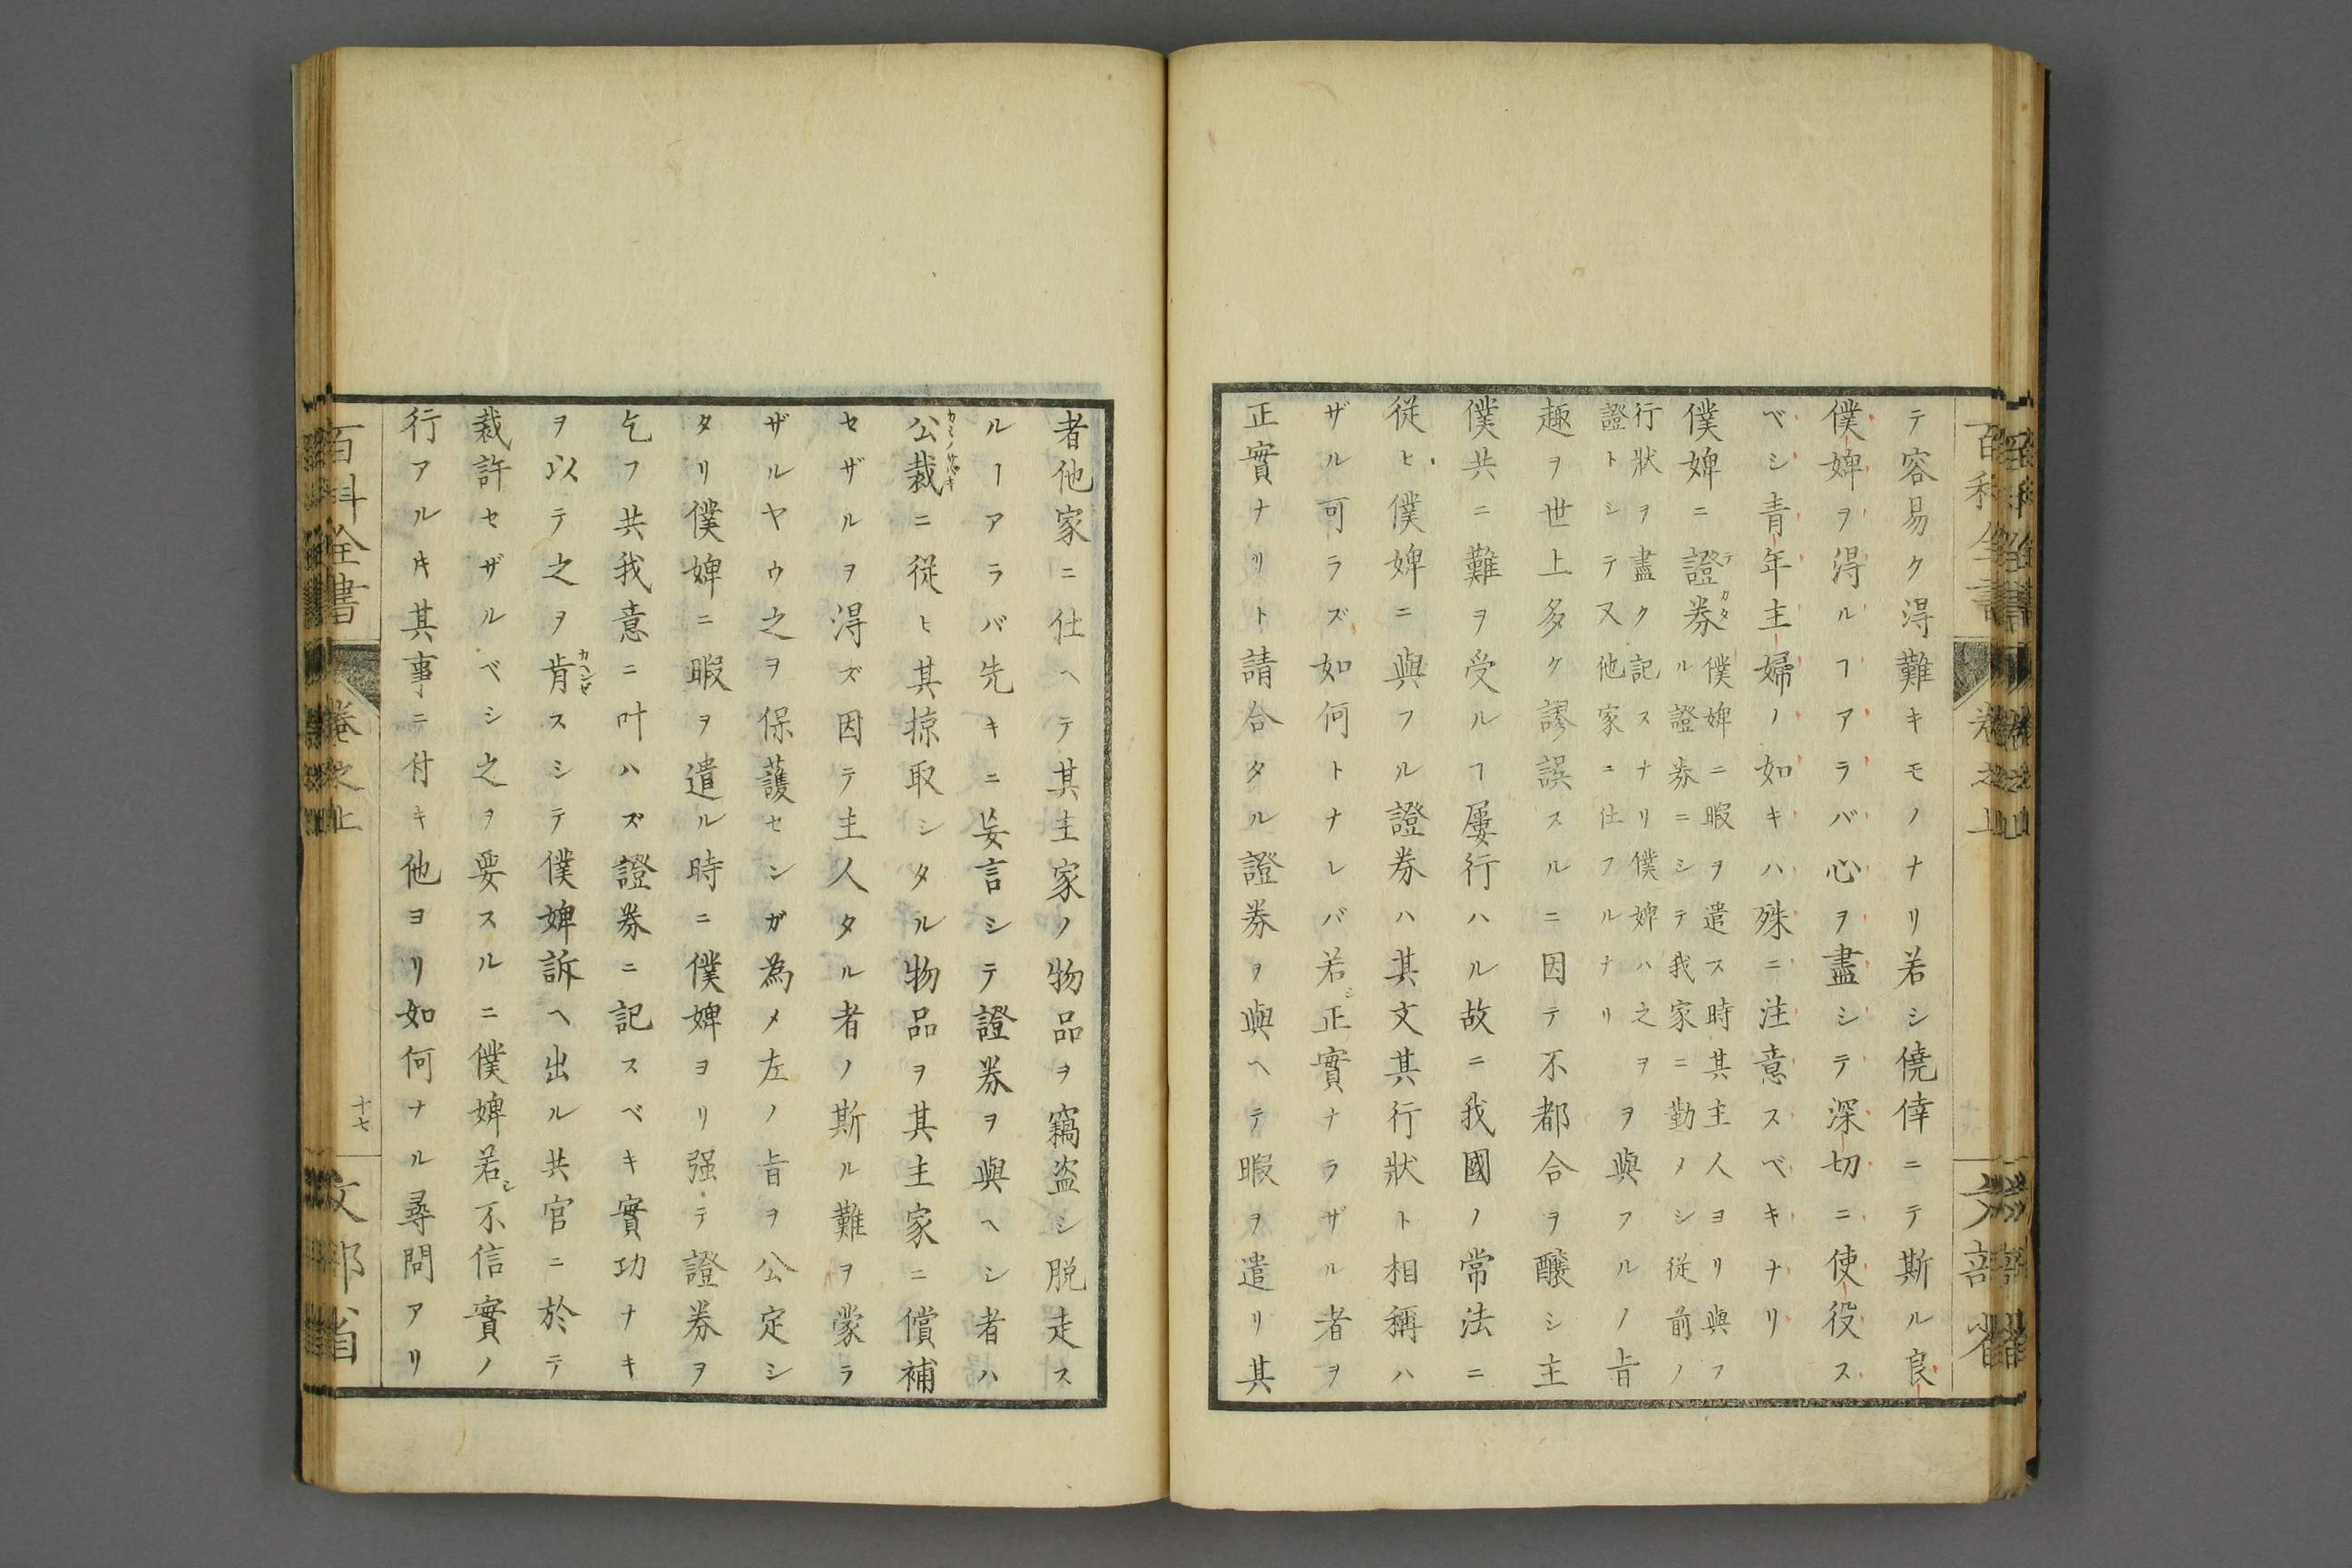 テ容易ク得難キモノナリ若シ僥倖ニテ斯ル良
僕婢ヲ得ルヿアラバ心ヲ盡シテ深切ニ使役ス
ベシ青年主婦ノ如キハ殊ニ注意スベキナリ
僕婢ニ證券
テガタ
僕婢ニ暇ヲ遣ス時其主人ヨリ與フ
ル證券ニシテ我家ニ勤メシ從前ノ
行狀ヲ盡ク記スナリ僕婢ハ之ヲ
證トシテ又他家ニ仕フルナリ
ヲ與フルノ旨
趣ヲ世上多ク謬誤スルニ因テ不都合ヲ釀シ主
僕共ニ難ヲ受ルヿ屢行ハル故ニ我國ノ常法ニ
從ヒ僕婢ニ與フル證券ハ其文其行狀ト相稱ハ
ザル可ラズ如何トナレバ若シ正實ナラザル者ヲ
正實ナリト請合タル證券ヲ與ヘテ暇ヲ遣リ其
者他家ニ仕ヘテ其主家ノ物品ヲ竊盜シ脱走ス
ルヿアラバ先キニ妄言シテ證券ヲ與ヘシ者ハ
公裁ニ從ヒ其掠取シタル物品ヲ其主家ニ償補
カミノサバキ
セザルヲ得ズ因テ主人タル者ノ斯ル難ヲ蒙ラ
ザルヤウ之ヲ保護センガ為メ左ノ旨ヲ公定シ
タリ僕婢ニ暇ヲ遣ル時ニ僕婢ヨリ强テ證券ヲ
乞フ共我意ニ叶ハズ證券ニ記スベキ實功ナキ
ヲ以テ之ヲ肯スシテ僕婢訴ヘ出ル共官ニ於テ
カヘンゼ
裁許セザルベシ之ヲ要スルニ僕婢若シ不信實ノ
行アル𪜈其事ニ付キ他ヨリ如何ナル尋問アリ
百科全書
卷之上
十七
文部省